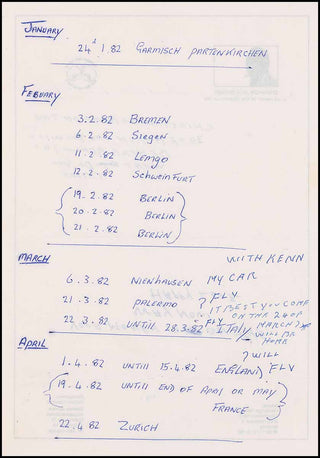 JANUARY
24.1.82 GARMISCH PARTENKIRCHEN
FEBUARY
3.2.82 BREMEN
6.2.82 Siegen
11.2.82 Lemgo
12.2.82 SchweinFURT
19.2.82 BERLIN
20.2.82 BERLIN
21.2.82 BERLIN
WITH KENN
MARCH
MY CAR
6.3.82 NIENHAUSEN
21.3.82 PALERMO ? FLY
IT BEST YOU COME
ON THE 24 OF
MARCH
22.3.82 UNTILL 28.3.82 FLY ITALY
WILL BE
HOME
APRIL
? WILL
1.4.82 UNTILL 15.4.82 ENGLAND FLY
19.4.82 UNTILL END OF APRIL OR MAY
FRANCE
22.4.82 ZURICH